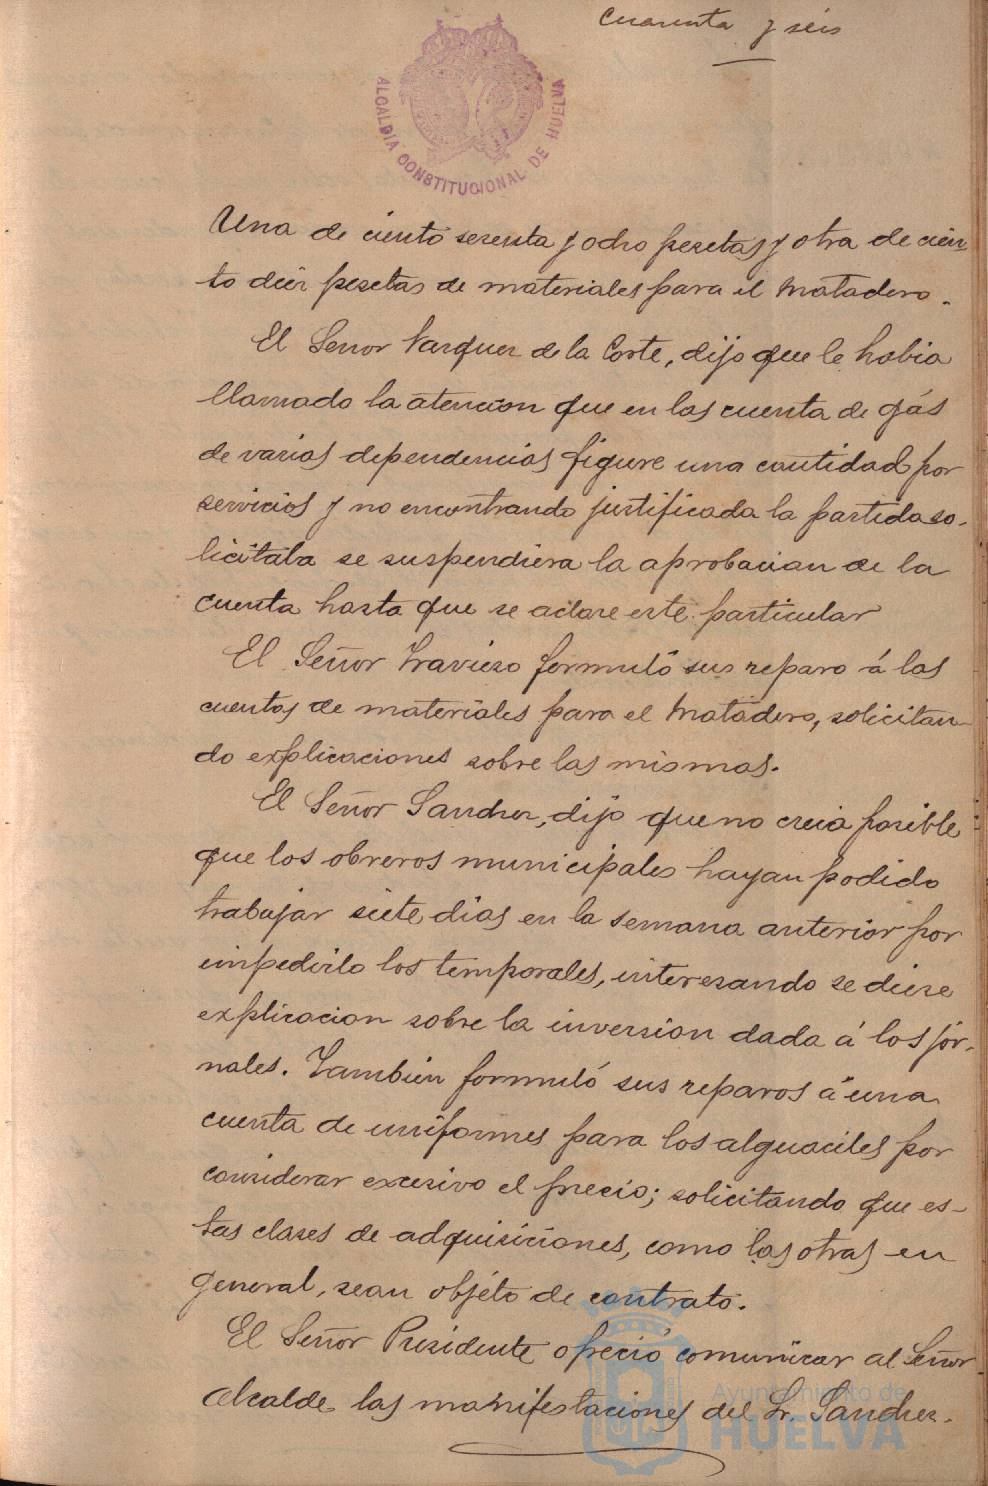 cuarenta y seis
ALCALDIA CONSTITUCIONAL DE HUELVA
Una de ciento sesenta y ocho pesetas y otra de cien-
to diez pesetas de materiales para el Matadero.
El Señor Vazquez de la Corte, dijo que le habia
llamado la atencion que en las cuenta de gás
de varias dependencias figure una cantidad por
servicios y no encontrando justificada la partida so-
licitaba se suspendiera la aprobacian de la
cuenta hasta que se aclare este particular
El Señor Travieso formuló sus reparo á las
cuentas de materiales para el Matadero, solicitan-
do explicaciones sobre las mismas.
El Señor Sanchez, dijo que no creia posible
que los obreros municipales hayan podido
trabajar siete dias en la semana anterior por
impedirlo los temporales, interesando se diese
explicacion sobre la inversion dada á los jor-
nales. Tambien formuló sus reparos á una
cuenta de uniformes para los alguaciles por
considerar excesivo el precio; solicitando que es-
tas clases de adquisiciones, como las otras en
general, sean objéto de contrato.
El Señor Presidente ofreció comunicar al Señor
Alcalde las manifestaciones del Sr. Sanchez.
Ayuntamiento de
HUELVA